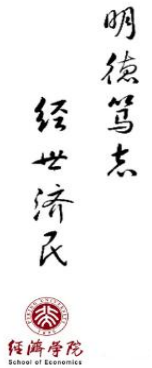 明德笃志
经世济民
經濟学院
School of Economics